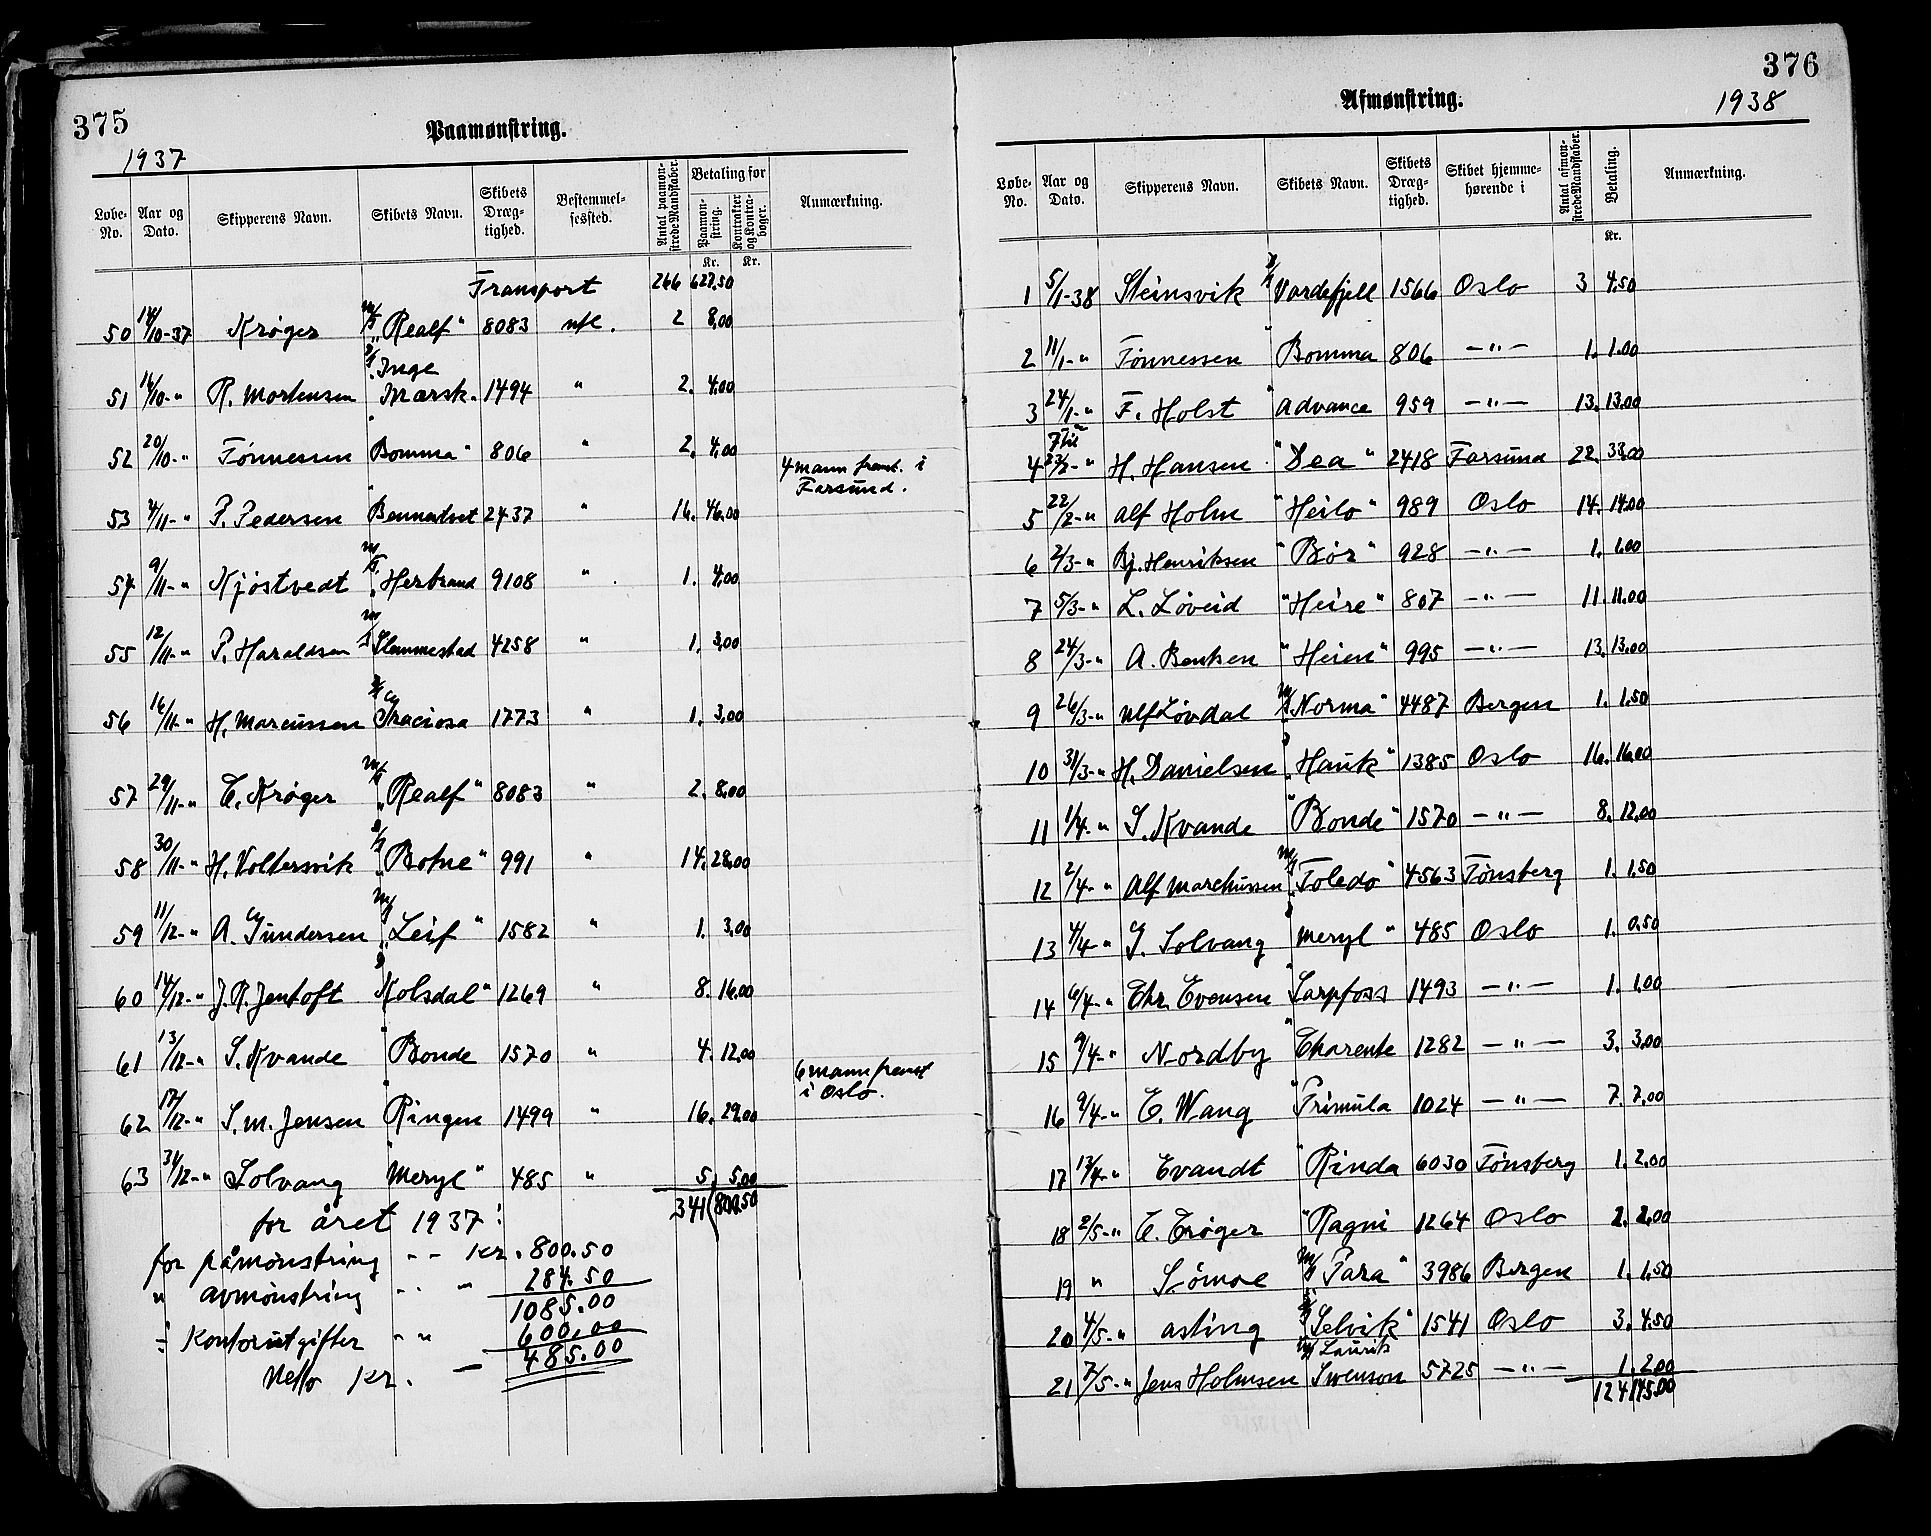 375
Paamønstring.
1937
Løbe-No. Aar og Dato. Skipperens Navn. Skibets Navn. Skibets Dræg-tighed. Bestemmel-sessted. Antal paamøn-strede Mandskaber. Betaling for Paamøn-string. Kontrakter og Kontra-bøger. Anmærkning.
Kr. Kr.
Transport 266 627,50
50 14/10-37 Krøger M/S "Realf" 8083 utl. 2 8,00
51 16/10-" R. Mortensen S/S Inge Mærsk. 1494 " 2. 4,00
52 20/10-" Tønnessen " Bomma" 806 " 2. 4,00
53 4/11-" P. Pedersen " Bennestvet 2437 " 16. 46,00 4 mann fremt. i Farsund.
54 9/11-" Kjøstvedt M/T. "Herbrand 9108 " 1. 4,00
55 12/11-" P. Haraldsen M/S Slemmestad 4258 " 1. 3,00
56 16/11-" H. Marcussen S/S Graciosa 1773 " 1. 3,00
57 29/11-" C. Krøger M/S "Realf" 8083 " 2. 8,00
58 30/11-" H. Voltersvik S/S "Botne" 991 " 14. 28,00
59 11/12-" A. Gundersen M/S "Leif" 1582 " 1. 3,00
60 14/12-" J.R. Jentoft S Kolsdal" 1269 " 8. 16,00
61 13/12-" S. Kvande " Bonde 1570 " 4. 12,00
62 17/12-" S.M. Jensen " Ringen 1499 " 16. 29,00 6 mann fremt i Oslo.
63 31/12-" Solvang " Meryl" 485 " 5, 5,00
341 800.50
for året 1937:
for påmønstring -- Kr. 800.50
" avmønstring -- " 284.50
1085.00
÷ Kontorutgifter - " 600,00
Netto Kr. — 485.00
376
Afmønstring.
1938
Løbe-No. Aar og Dato. Skipperens Navn. Skibets Navn. Skibets Dræg-tighed. Skibet hjemme-hørende i Antal afmøn-strede Mandskaber. Betaling. Anmærkning.
Kr.
1 5/1-38 Steinsvik S/S Vardefjell 1566 Oslo 3 4,50
2 11/1-" Tønnessen " Bomma 806 —"— 1. 1.00
3 24/1-" F. Holst " Advance 959 —"— 13. 13,00
4 7 til 23/2-" H. Hansen. "Dea" 2418 Farsund 22. 33,00
5 22/2-" Alf Holm "Heilo" 989 Oslo 14. 14,00
6 2/3-" Bj. Henriksen "Bør" 928 —"— 1. 1.00
7 5/3-" L. Løveid "Heire" 807 —"— 11. 11,00
8 24/3-" A. Bentsen "Heien" 995 —"— 13. 13,00
9 26/3-" Ulf Løvdal M/S "Norma" 4487 Bergen 1. 1.50
10 31/3-" H. Danielsen S "Hauk" 1385 Oslo 16. 16,00
11 1/4-" S. Kvande "Bonde" 1570 —"— 8. 12,00
12 2/4-" Alf Marchussen M/S "Toledo" 4563 Tønsberg 1. 1.50
13 4/4-" G. Solvang S Meryl" 485 Oslo 1. 0.50
14 6/4-" Chr. Evensen " Sarpfoss 1493 —"— 1. 1,00
15 9/4-" Nordby " Charente 1282 —"— 3. 3,00
16 9/4-" E. Wang " Primula 1024 —"— 7. 7,00
17 13/4-" Evandt "Rinda 6030 Tønsberg 1. 2.00
18 2/5-" C. Crøger "Ragni 1264 Oslo 2. 2,00
19 " Sømoe M/S "Para" 3986 Bergen 1. 1,50
20 4/5-" Asting S/S "Selvik" 1541 Oslo 3. 4.50
21 7/5-" Jens Holmsen M/S Laurits Swenson 5725 —"— 1. 2.00
124 145.00